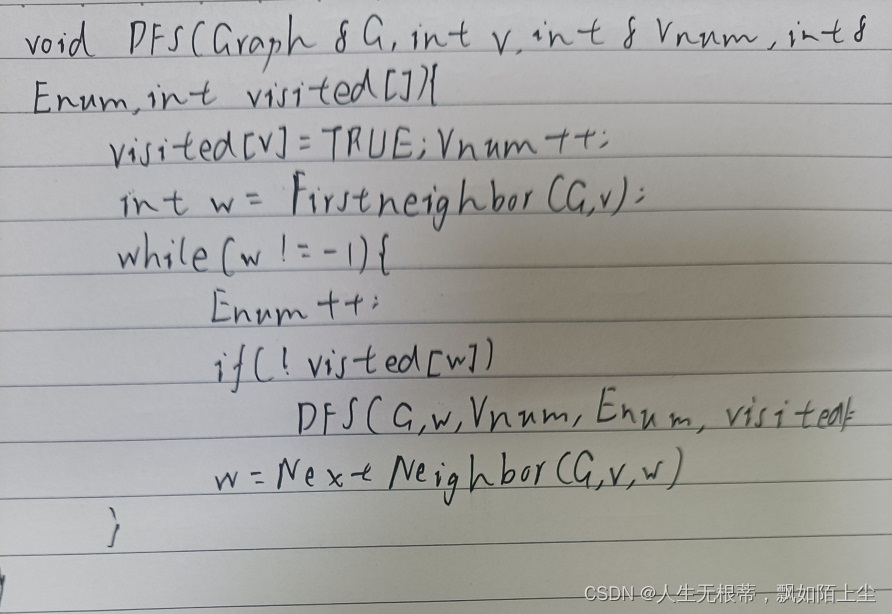 void DFS(Graph &G, int v, int & Vnum, int &
Enum, int visited[]){
visited[v]=TRUE; Vnum++;
int w = Firstneighbor(G,v);
while(w != -1){
Enum++;
if(! visted[w])
DFS(G,w,Vnum, Enum, visited
w=NextNeighbor(G,v,w)
}
CSDN @人生无根蒂，飘如陌上尘